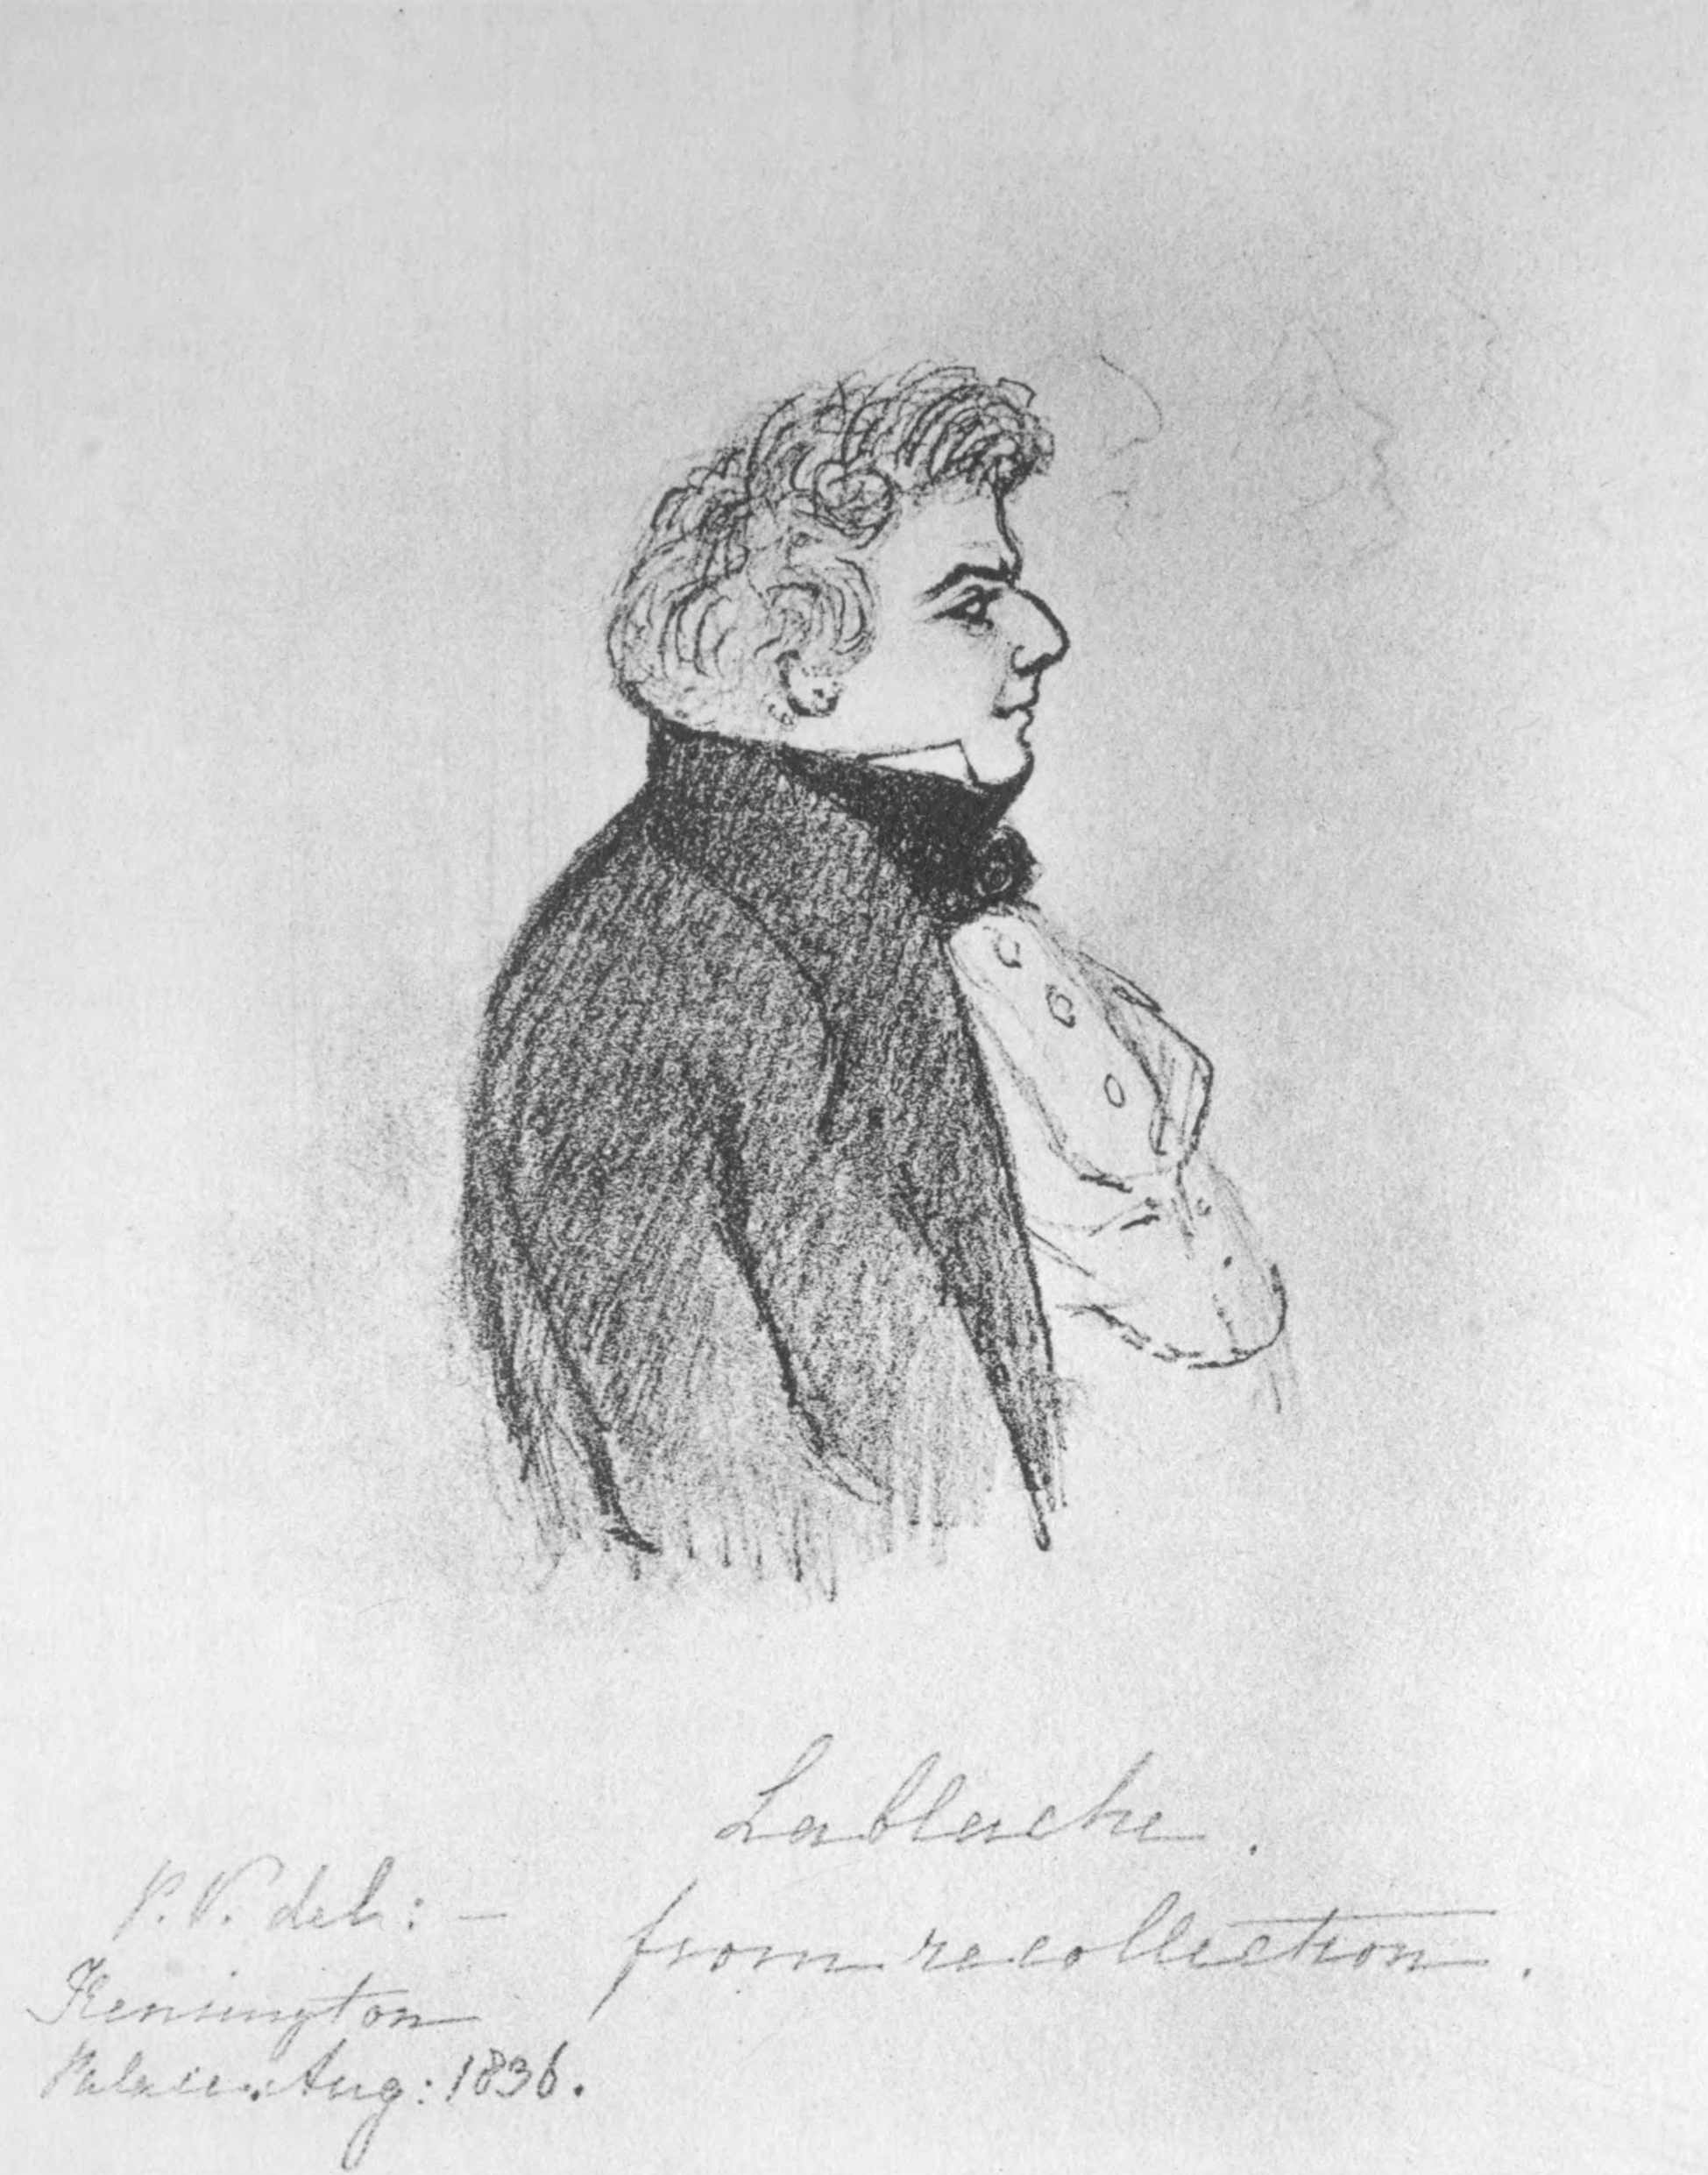 Lablache.
from recollection.
P. V. del: —
Kensington
Palace. Aug: 1836.